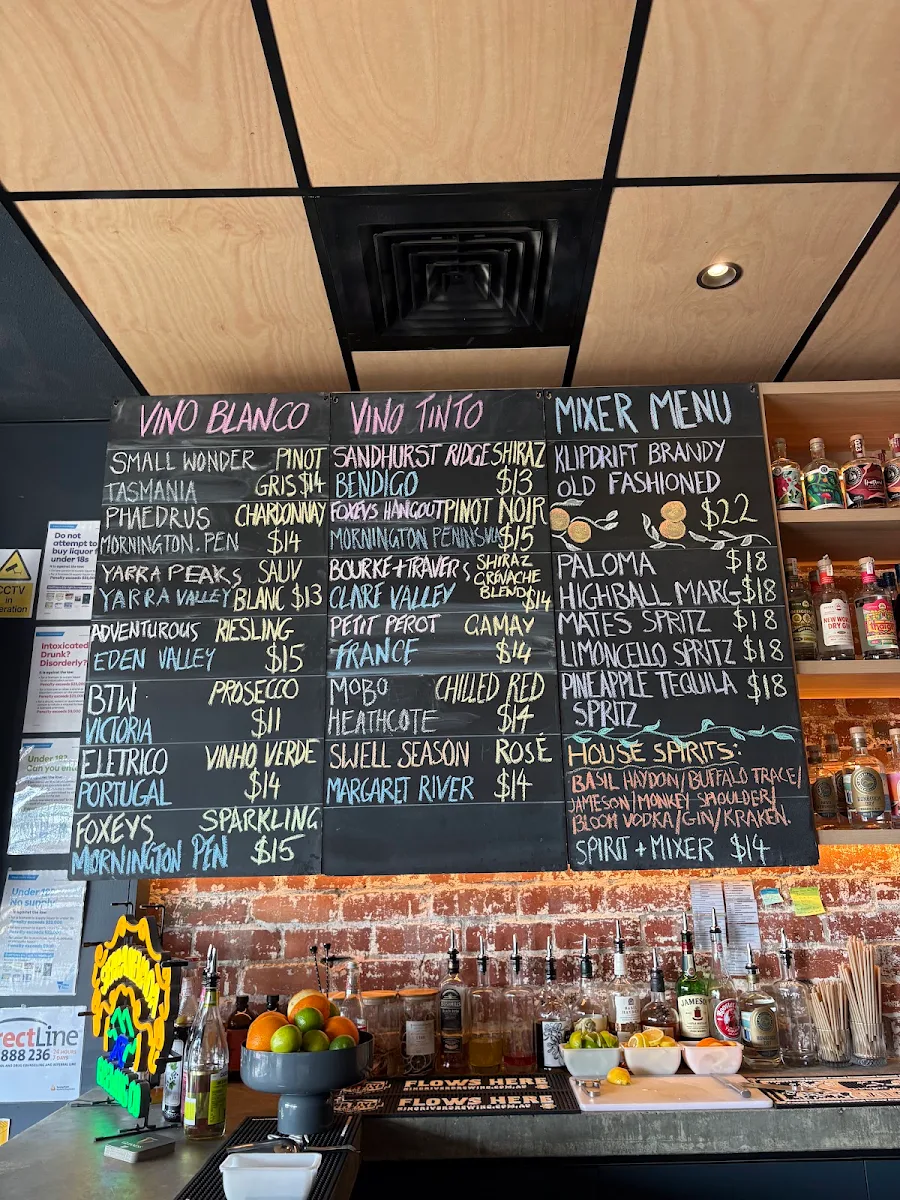 VINO BLANCO
SMALL WONDER PINOT
TASMANIA GRIS $14
PHAEDRUS CHARDONNAY
MORNINGTON. PEN $14
YARRA PEAKS SAUV
YARRA VALLEY BLANC $13
ADVENTUROUS RIESLING
EDEN VALLEY $15
BTW PROSECCO
VICTORIA $11
ELETRICO VINHO VERDE
PORTUGAL $14
FOXEYS SPARKLING
MORNINGTON PEN $15
VINO TINTO
SANDHURST RIDGE SHIRAZ
BENDIGO $13
FOXEYS HANGOUT PINOT NOIR
MORNINGTON PENINSULA $15
BOURKE + TRAVERS SHIRAZ
GREVACHE
CLARE VALLEY BLEND $14
PETIT PEROT GAMAY
FRANCE $14
MOBO CHILLED RED
HEATHCOTE $14
SWELL SEASON ROSÉ
MARGARET RIVER $14
MIXER MENU
KLIPDRIFT BRANDY
OLD FASHIONED
$22
PALOMA $18
HIGHBALL MARG $18
MATES SPRITZ $18
LIMONCELLO SPRITZ $18
PINEAPPLE TEQUILA $18
SPRITZ
HOUSE SPIRITS:
BASIL HAYDON/BUFFALO TRACE/
JAMESON/MONKEY SHOULDER/
BLOOM VODKA/GIN/KRAKEN.
SPIRIT + MIXER $14
CCTV
in
operation
Do not
attempt to
buy liquor
under 18s
Intoxicated
Drunk?
Disorderly?
Under 18?
Can you
Under 18?
No supply
rectLine
888 236
JAMESON
FLOWS HERE
FLOWS HERE